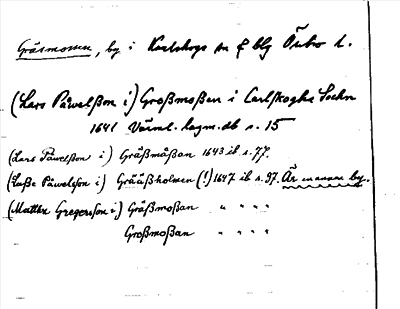 Gråsmossen, by i Karlskoga sn o blg Örebro l.
(Lars Påwelßon i) Großmoßen i Carlskogha Sochn
1641 Värml. lagm.db s. 15
(Lars Påwelßon i) Gräßmåßan 1643 ib s. 77.
(Laße Påwelson i) Grääßholmen (!) 1647 ib s. 97. Är annan by.
(Matthz Gregersson i) Gråßmoßan " " " "
Großmoßan " " " "